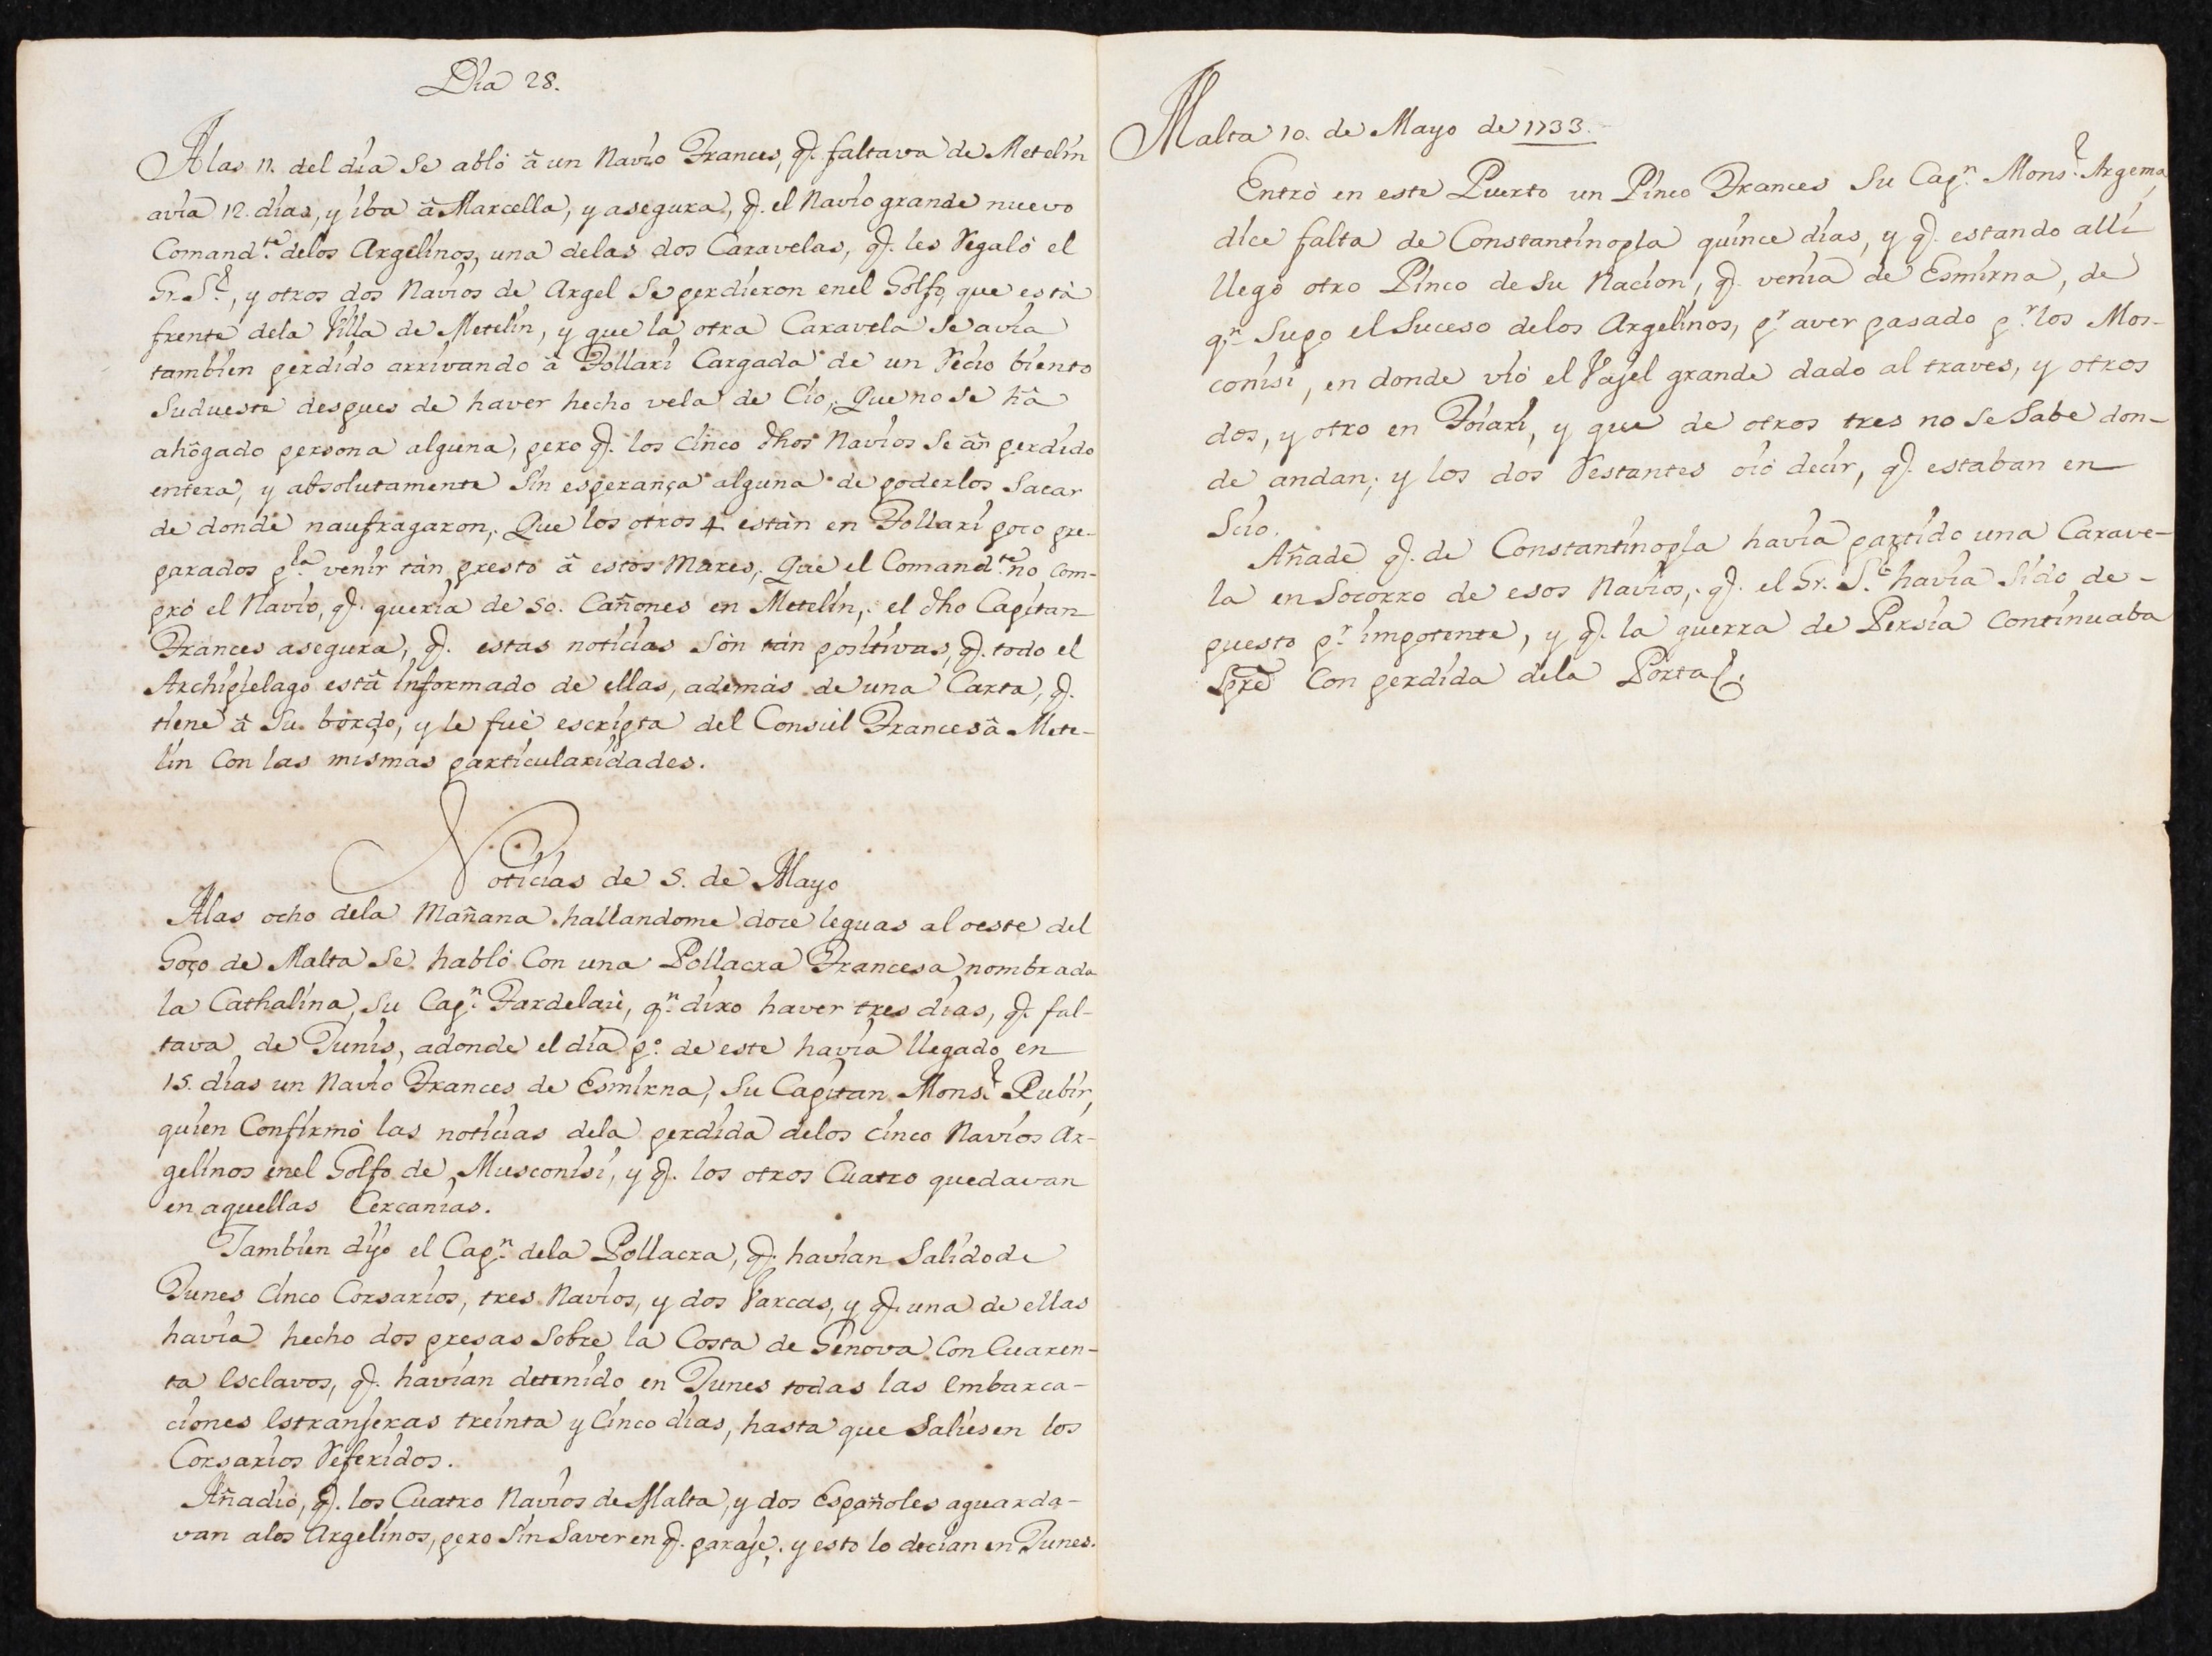 Dia 28.
A las 11. del dia se abló â un Navio Frances, q̃. faltava de Metelin
avia 12. dias, y iba â Marcella, y asegura, q̃. el Navio grande nuevo
Comand.te delos Argelinos, una delas dos Caravelas, q̃. les Regaló el
Gr. S.r, y otros dos Navios de Argel se perdieron enel Golfo, que està
frente dela Villa de Metelin, y que la otra Caravela se avia
tambien perdido arrivando â Follari Cargada de un Recio biento
Sudueste despues de haver hecho vela de Cio; Que no se hâ
ahôgado persona alguna, pero q̃. los Cinco dhos Navios se ân perdido
entera, y absolutamente sin esperança alguna de poderlos Sacar
de donde naufragaron; Que los otros 4 estàn en Follari poco pre-
parados p.la venir tàn presto â estos Mares; Que el Comand.te no com-
prò el Navio, q̃. queria de 50. Cañones en Metelin; el dho Capitan
Frances asegura, q̃. estas noticias sòn tàn positivas, q̃. todo el
Archipielago estâ informado de ellas, ademàs de una Carta, q̃.
tiene â Su bordo, y le fuè escripta del Consùl Frances â Mete-
lin Con las mismas particularidades.
Noticias de 5. de Mayo
A las ocho dela Mañana hallandome doce leguas al oeste del
Goço de Malta se habló Con una Pollacra Francesa nombrada
la Cathalina, su Cap.n Fardelaù, q.n dixo haver tres dias, q̃. fal-
tava de Tunis, adonde el dia p.o de este havia llegado en
15. dias un Navio Frances de Esmirna, Su Capitan Mons.r Rubir,
quien Confirmò las noticias dela perdida delos cinco Navios Ar-
gelinos enel Golfo de Musconisi, y q̃. los otros Cuatro quedavan
en aquellas Cercanias.
Tambien dijo el Cap.n dela Pollacra, q̃. havian Salido de
Tunes Cinco Corsarios, tres Navios, y dos Varcas, y q̃. una de ellas
havia hecho dos presas sobre la Costa de Genova Con Cuaren-
ta esclavos, q̃. havian detenido en Tunes todas las embarca-
ciones estranjeras treinta y Cinco dias, hasta que saliesen los
Corsarios Referidos.
Añadiò, q̃. los Cuatro Navios de Malta, y dos Españoles aguarda-
van alos Argelinos, pero sin Saver en q̃. paraje; y esto lo decian en Tunes.
Malta 10. de Mayo de 1733.
Entrò en este Puerto un Pinco Frances Su Cap.n Mons.r Argema,
dice falta de Constantinopla quince dias, y q̃. estando alli
llegò otro Pinco de Su Nacion, q̃. venia de Esmirna, de
q.n Supo el Suceso delos Argelinos, p.r aver pasado p.r los Mos-
conisi, en donde viò el Vajel grande dado al traves, y otros
dos, y otro en Foiari, y que de otros tres no se Sabe don-
de andan; y los dos Restantes oiò decir, q̃. estaban en
Scio.
Añade q̃. de Constantinopla havia partido una Carave-
la en Socorro de esos Navios; q̃. el Gr. S.r havia sido de-
puesto p.r impotente, y q̃. la guerra de Persia Continuaba
spre Con perdida dela Porta.